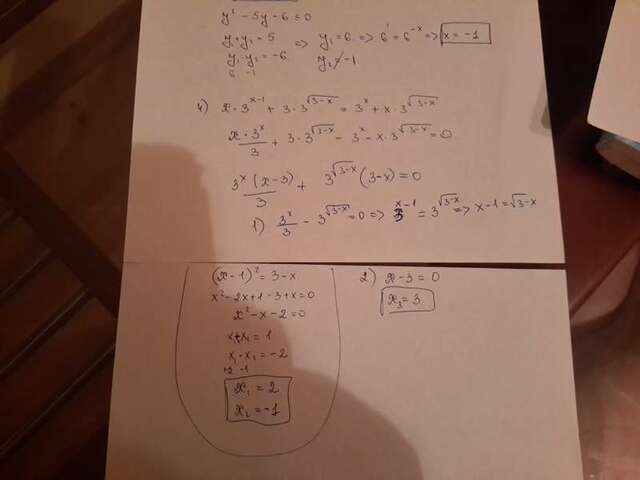 y² - 5y - 6 = 0
y₁+y₂ = 5 => y₁ = 6 => 6¹ = 6^(-x) => x = -1
y₁ · y₂ = -6 y₂ ≠ -1
6 -1
4) x · 3^(x-1) + 3 · 3^(√(3-x)) = 3^x + x · 3^(√(3-x))
(x · 3^x)/3 + 3 · 3^(√(3-x)) - 3^x - x · 3^(√(3-x)) = 0
(3^x (x-3))/3 + 3^(√(3-x)) (3-x) = 0
1) 3^x/3 - 3^(√(3-x)) = 0 => 3^(x-1) = 3^(√(3-x)) => x-1 = √(3-x)
(x-1)² = 3-x
x² - 2x + 1 - 3 + x = 0
x² - x - 2 = 0
x₁+x₂ = 1
x₁ · x₂ = -2
+2 -1
x₁ = 2
x₂ = -1
2) x - 3 = 0
x₃ = 3